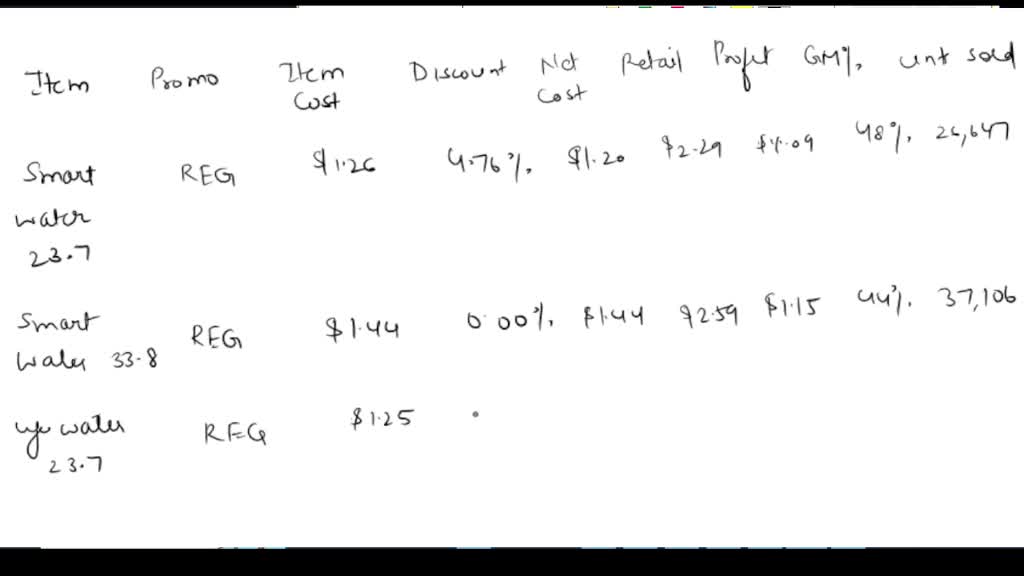 Item Promo Item Cost Discount Net Cost Retail Profit GM% unt sold
Smart water 23.7 REG $1.26 4.76% $1.20 $2.29 $1.09 48% 26,647
Smart Water 33.8 REG $1.44 0.00% $1.44 $2.59 $1.15 44% 37,106
water 23.7 REG $1.25